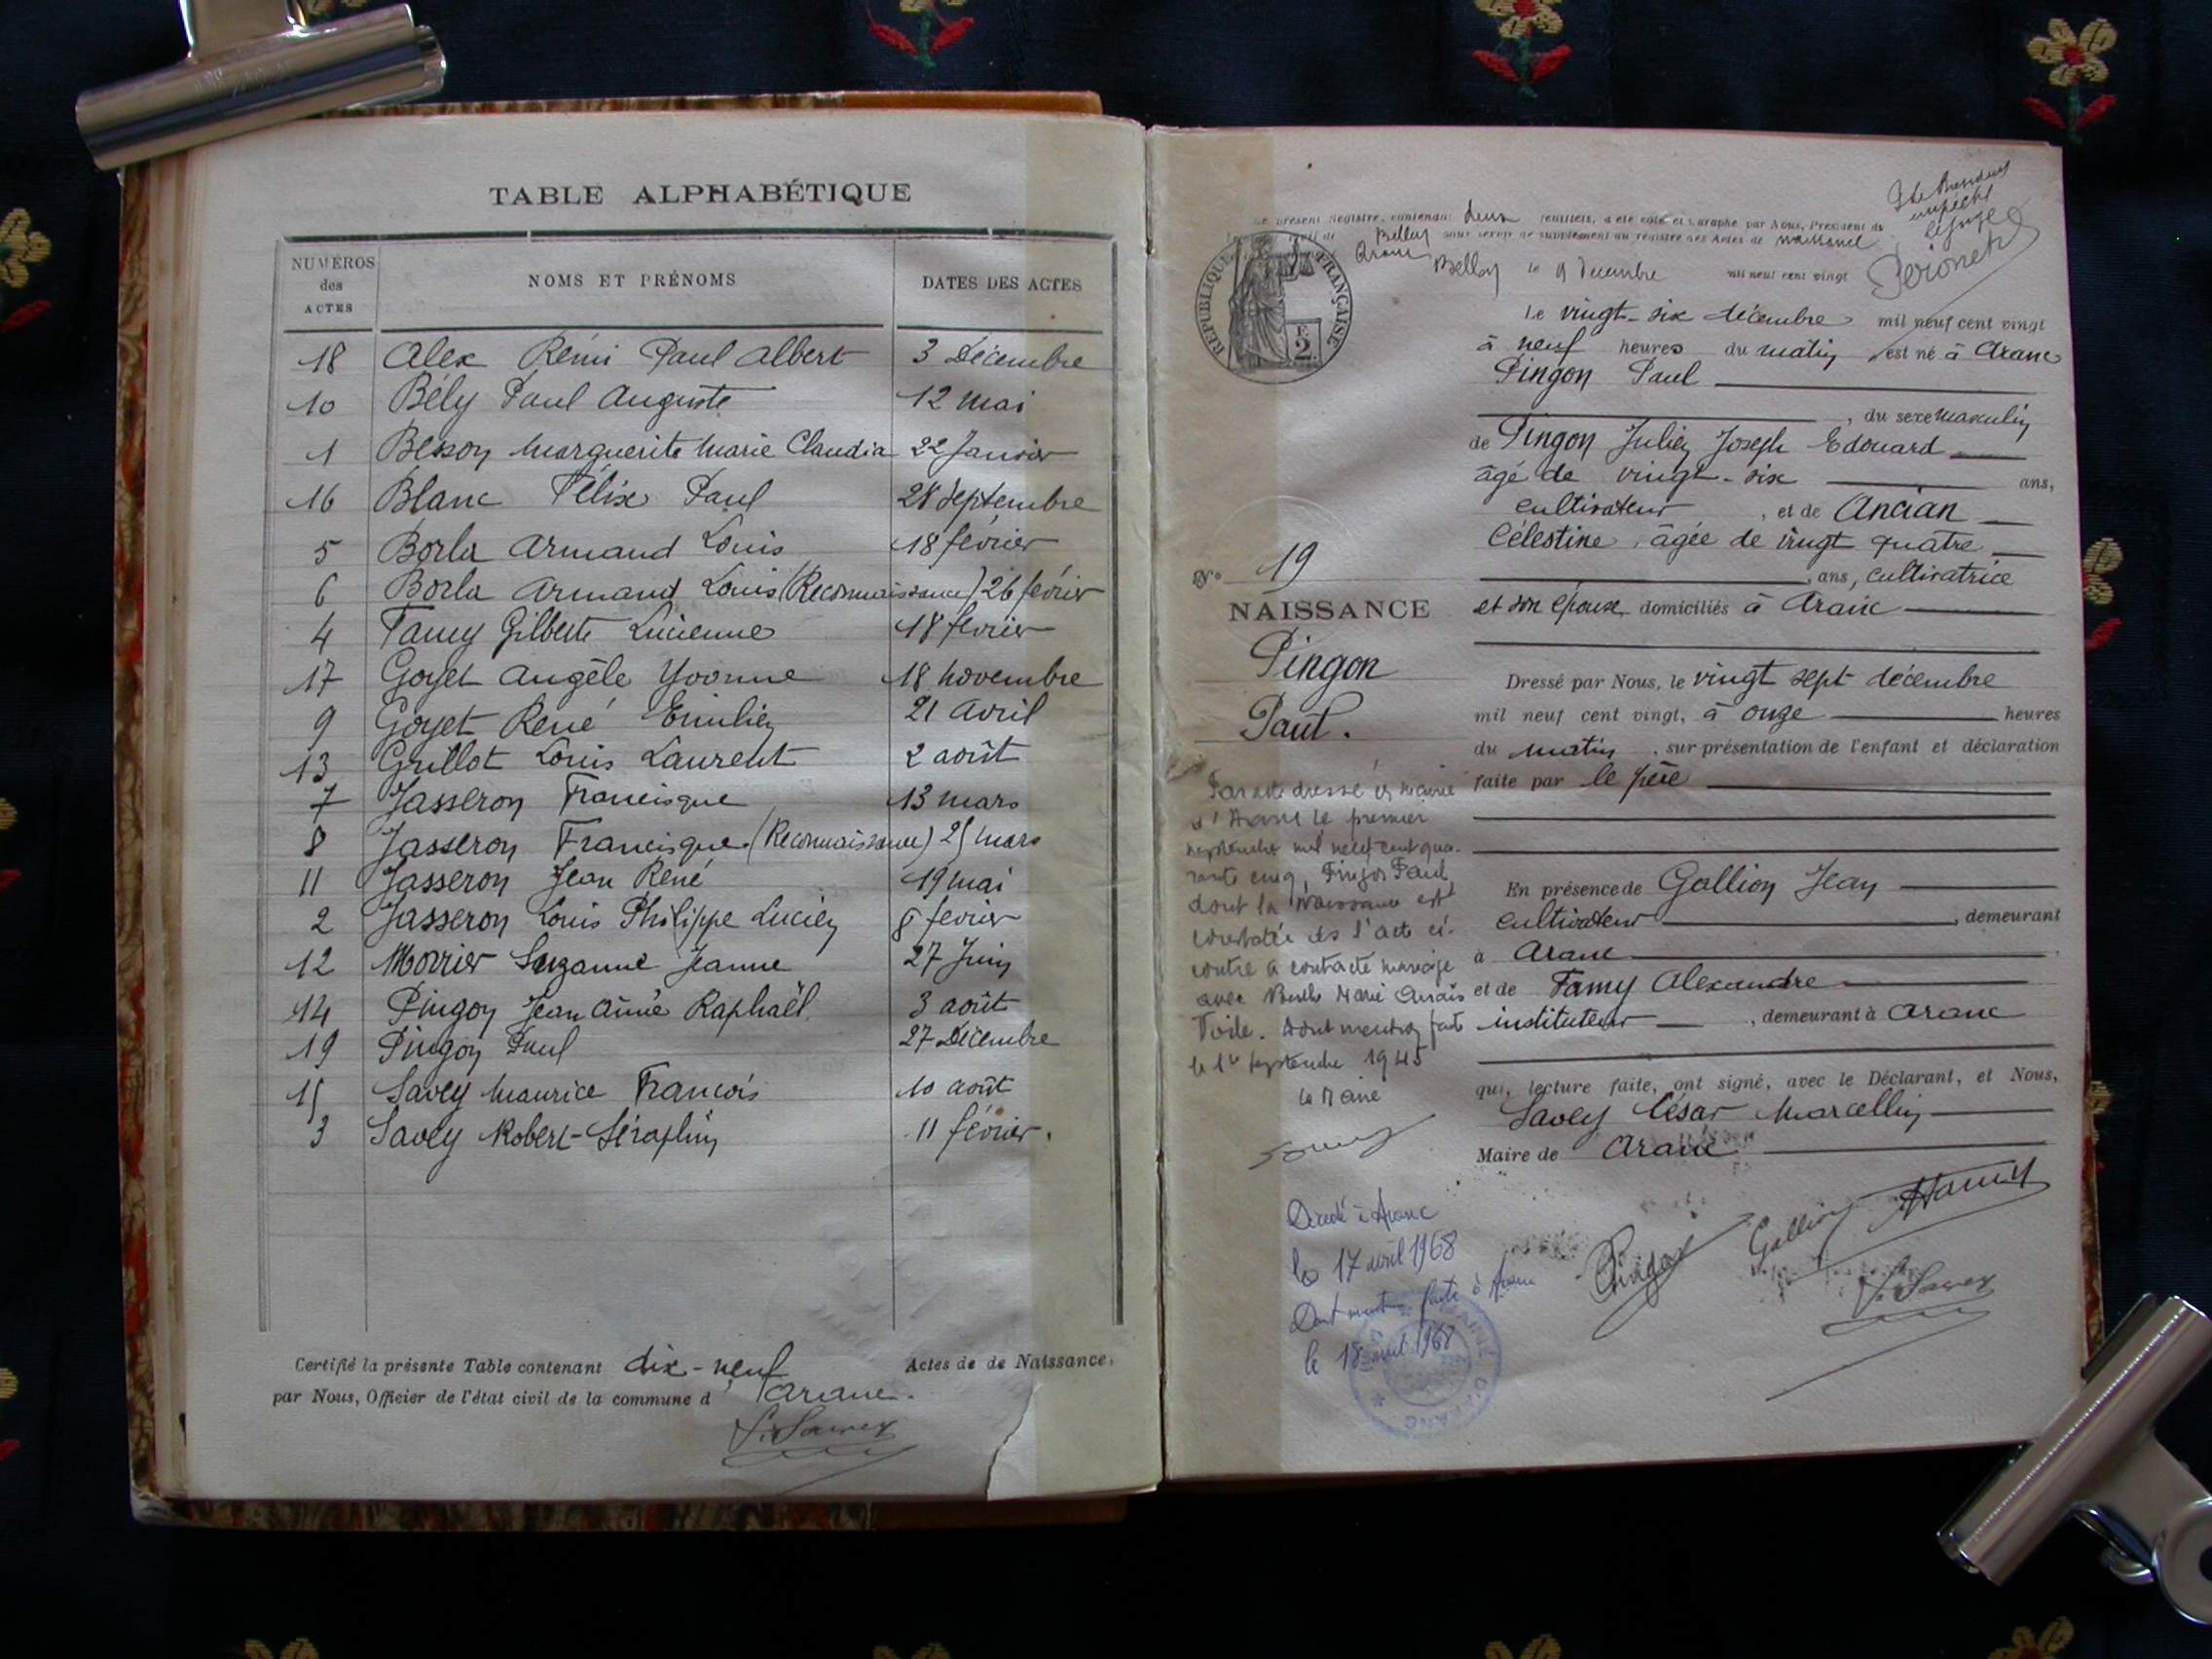 TABLE ALPHABÉTIQUE
NUMÉROS des ACTES NOMS ET PRÉNOMS DATES DES ACTES
18 Alex Rémi Paul Albert 3 Décembre
10 Bély Paul Auguste 12 mai
1 Besson Marguerite Marie Claudia 22 Janvier
16 Blanc Félix Paul 28 Septembre
5 Borla Armand Louis 18 février
6 Borla Armand Louis (Reconnaissance) 26 février
4 Famy Gilberte Lucienne 18 février
17 Goyet Angèle Yvonne 18 novembre
9 Goyet René Emilien 21 Avril
13 Grillot Louis Laurent 2 août
7 Jasseron Francisque 13 mars
8 Jasseron Francisque (Reconnaissance) 25 mars
11 Jasseron Jean René 19 mai
2 Jasseron Louis Philippe Lucien 8 fevrier
12 Morrier Suzanne Jeanne 27 Juin
14 Pingon Jean Aimé Raphaël 3 août
19 Pingon Paul 27 Décembre
15 Savey Maurice François 10 août
3 Savey Robert-Séraphin 11 février.
Certifié la présente Table contenant dix-neuf Actes de de Naissance,
par Nous, Officier de l'état civil de la commune d'Aranc.
Savey
Le présent Registre, contenant deux feuillets, a été coté et paraphé par Nous, Président du
de Belley pour servir de supplément au registre des Actes de naissance
Aranc Belley le 9 Decembre mil neuf cent vingt
empêché
le juge
Peronet
RÉPUBLIQUE FRANÇAISE
2
Le vingt-six décembre mil neuf cent vingt
à neuf heures du matin est né à Aranc
Pingon Paul
, du sexe masculin
de Pingon Julien Joseph Edouard
âgé de vingt-six ans,
cultivateur, et de Ancian
Célestine, âgée de vingt quatre
ans, cultivatrice
et son épouse domiciliés à Aranc
Dressé par Nous, le vingt sept décembre
mil neuf cent vingt, à onze heures
du matin, sur présentation de l'enfant et déclaration
faite par le père
En présence de Gallion Jean
cultivateur, demeurant
à Aranc
et de Famy Alexandre
instituteur, demeurant à Aranc
qui, lecture faite, ont signé, avec le Déclarant, et Nous,
Savey César Marcellin
Maire de Aranc
Pingon Gallion Famy
Savey
N° 19
NAISSANCE
Pingon
Paul.
Par acte dressé en mairie
d'Aranc le premier
septembre mil neuf cent qua-
rante cinq, Pingon Paul
dont la naissance est
constatée en l'acte ci-
contre a contracté mariage
avec Berthe Marie Anaïs
. Dont mention faite
le 1er septembre 1945
Le Maire
Savey
Décédé à Aranc
le 17 avril 1968
Dont mention faite à Aranc
le 18 avril 1968